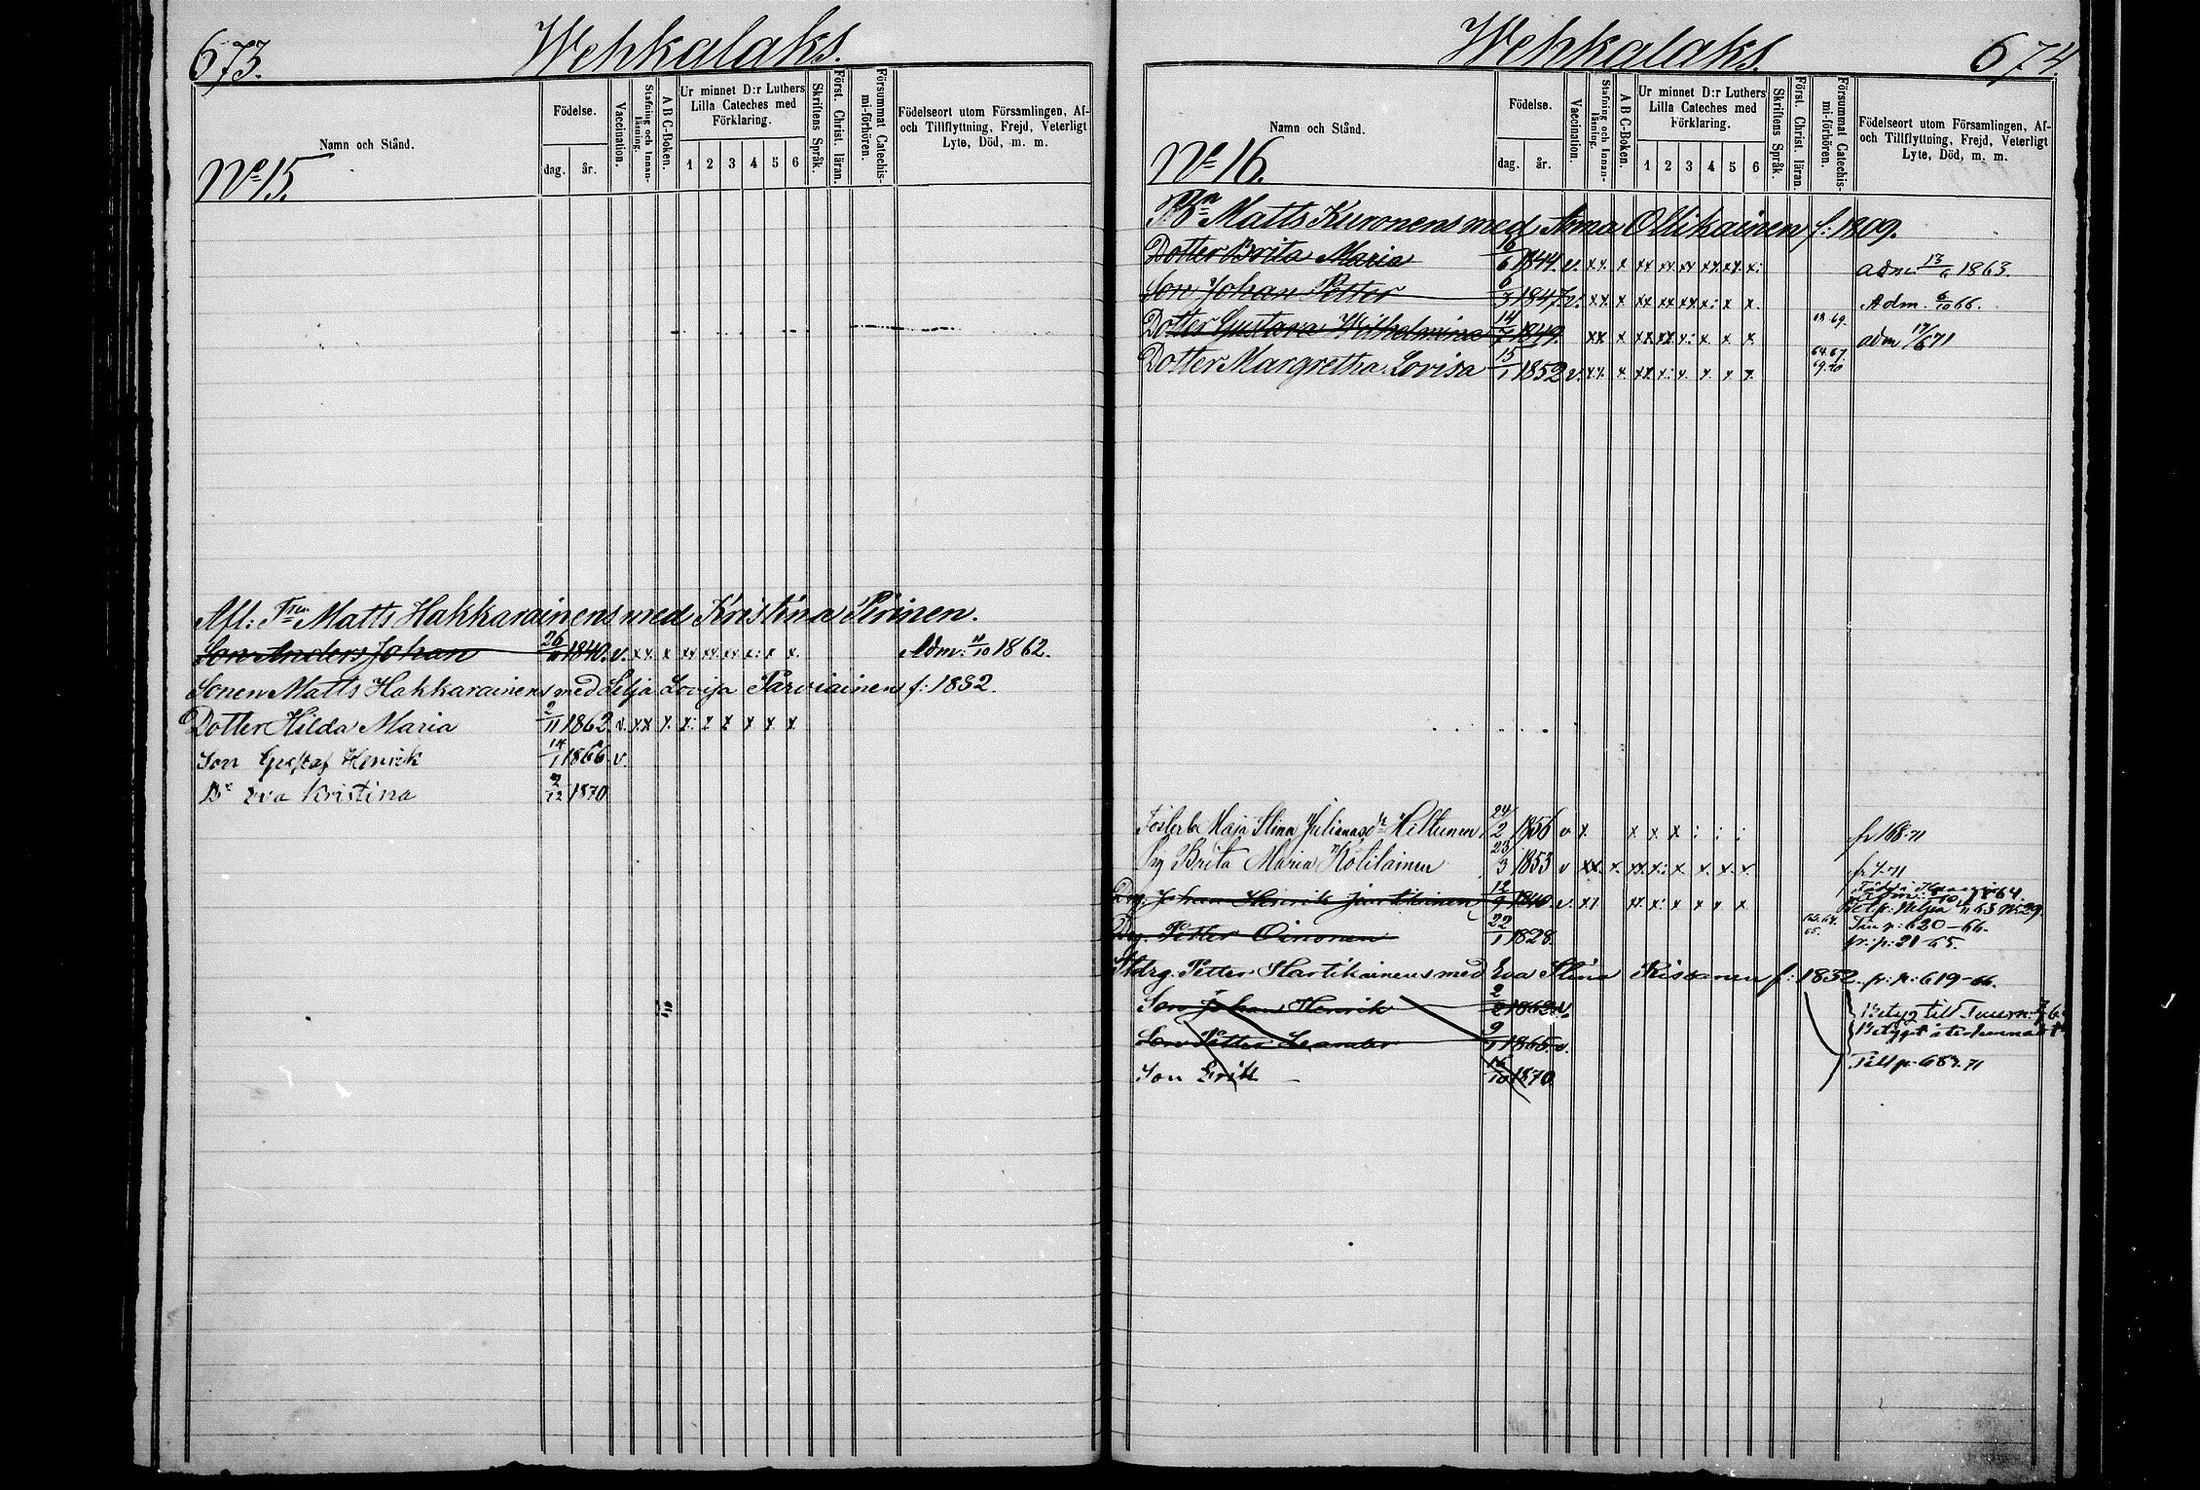 673. Wehkalaks.
Namn och Stånd.
Födelse.
dag. år.
Vaccination.
Stafning och Innan-läsning.
A B C-Boken.
Ur minnet D:r Luthers
Lilla Cateches med
Förklaring.
1 2 3 4 5 6
Skriftens Språk.
Först. Christ. läran.
Försummat Catechis-mi-förhören.
Födelseort utom Församlingen, Af-
och Tillflyttning, Frejd, Veterligt
Lyte, Död, m. m.
No 15.
Afl: Matts Hakkarainens med Kristina Pirinen.
Son Anders Johan 26 1840. v. xx. x xx xx xx x: x x. Adm. 11/10 1862.
Sonen Matts Hakkarainens med Lovisa Parviainen f: 1832.
Dotter Hilda Maria 2/11 1862. v. xx x. x: x x x x x
Son Gustaf Henrik 14/1 1866 v.
Dr Eva Kristina 2/12 1870
Wehkalaks. 674.
Namn och Stånd.
Födelse.
dag. år.
Vaccination.
Stafning och Innan-läsning.
A B C-Boken.
Ur minnet D:r Luthers
Lilla Cateches med
Förklaring.
1 2 3 4 5 6
Skriftens Språk.
Först. Christ. läran.
Försummat Catechis-mi-förhören.
Födelseort utom Församlingen, Af-
och Tillflyttning, Frejd, Veterligt
Lyte, Död, m. m.
No 16.
Matts Kuronens med Anna Ollikainen f: 1809.
Dotter Brita Maria 16/6 1844. v. xx. x xx xx xx xx. xx. x: adm 1863.
Son Johan Petter 6/3 1847. v. xx x xx xx xx x: x x. Adm. 6/10 66.
Dotter Gustava Wilhelmina 14/7 1849. xx x xx xx x: x x x 69. adm 17/6 71
Dotter Margretha Lovisa 15/1 1852 v. xx. x. xx x: x. x. x x. 64.67. 69.70
Maja Stina Hiltunen 24/2 1856 v x. x x x : : : fr 168-71
Brita Maria Kotilainen 23/3 1853 v xx. x. xx. x: x x. x. x. fr 7-71
Drg. Johan Henrik 12/9 1840. v. xx xx. x: x x x x
Drg. Petter Oinonen 22/1 1828. fr: p: 21-65. p: 620-66.
Petter Hartikainens med Eva Stina f: 1832. fr: p: 619-66.
Son Johan Henrik 2 1862 v. Betyg till
Son Petter Leander 9/1 1865. v. Betyget
Son Erik 1870 Till p. 687-71